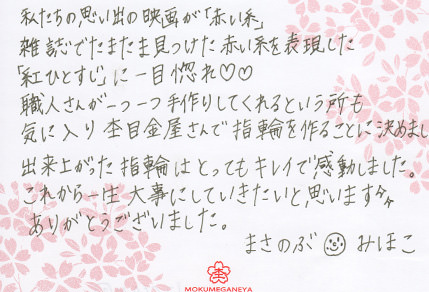 私たちの思い出の映画が「赤い糸」
雑誌でたまたま見つけた赤い糸を表現した
「紅ひとすじ」に一目惚れ♡♡
職人さんが一つ一つ手作りしてくれるという所も
気に入り杢目金屋さんで指輪を作ることに決めまし
出来上がった指輪はとってもキレイで感動しました。
これから一生大事にしていきたいと思います
ありがとうございました。
まさのぶ みほこ
杢
MOKUMEGANEYA